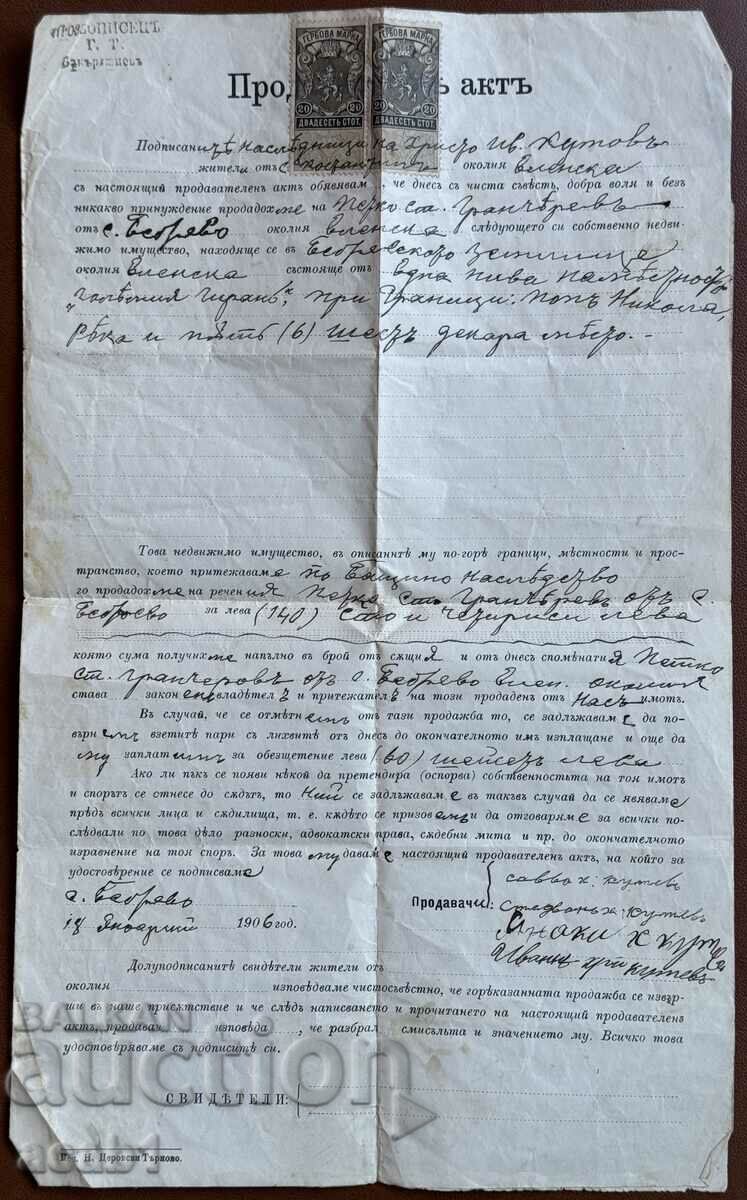 ПРОВОПИСЕЦЪ
Г. Т.
ГЕРБОВА МАРКА ГЕРБОВА МАРКА
20 20 20 20
ДВАДЕСЕТЬ СТОТ. ДВАДЕСЕТЬ СТОТ.
Прод ъ актъ
Подписанитѣ наслѣдници на Христо Ив. Кутовъ
жители отъ с. околия Еленска
съ настоящий продавателен актъ обявявам, че днесъ съ чиста съвѣсть, добра воля и безъ
никакво принуждение продадохме на Петко ст. Гранчеровъ
отъ с. Беброво околия Еленска следующето си собственно недви-
жимо имущество, находяще се въ Бебровското землище
околия Еленска състояще отъ една нива на мѣстность
при граници: попъ Никола,
рѣка и пѫть (6) шесть декара мѣсто.
Това недвижимо имущество, въ описаннтѣ му по-горѣ граници, мѣстности и прос-
транство, което притежаваме по бащино наслѣдство
го продадохме на речения Петко ст. Гранчеровъ отъ с.
Беброво за лева (140) сто и четириси лева
която сума получихме напълно въ брой отъ сѫщия и отъ днесъ спомѣнатия Петко
ст. Гранчеровъ отъ с. Беброво Елен. околия
става законенъ владѣтелъ и притежателъ на този продаденъ отъ насъ имотъ.
Въ случай, че се отмѣтнемъ отъ тази продажба то, се задлъжаваме да по-
върнемъ взетитѣ пари съ лихвитѣ отъ днесъ до окончателното имъ изплащане и още да
му заплатимъ за обезщетение лева (60) шейсетъ лева
Ако ли пъкъ се появи нѣкой да претендира (оспорва) собственностьта на тоя имотъ
и спорътъ се отнесе до сѫдътъ, то ний се задлъжаваме въ такъвъ случай да се являваме
прѣдъ всички лица и сѫдилища, т. е. кѫдето се призовемъ и да отговаряме за всички по-
слѣдвали по това дѣло разноски, адвокатски права, сѫдебни мита и пр. до окончателното
изравнение на тоя споръ. За това му даваме настоящий продавателенъ актъ, на който за
удостовѣрение се подписваме
с. Беброво
18 Януарий 1906 год.
Продавачи:
Савва х: Кутевъ
Стефанъ х: Кутевъ
Янаки х Кутевъ
Иванъ хри Кутевъ
Долуподписанитѣ свидѣтели жители отъ
околия изповѣдваме чистосъвѣстно, че горѣказанната продажба се извър-
ши въ наше присѫтствие и че слѣдъ написванието и прочитането на настоящий продавателенъ
актъ, продавач изповѣда, че разбрал смисълъта и значението му. Всичко това
удостовѣряваме съ подписитѣ си.
СВИДѢТЕЛИ:
Печ. Н. Церовски Търново.
BALKAN
auction
acdb1